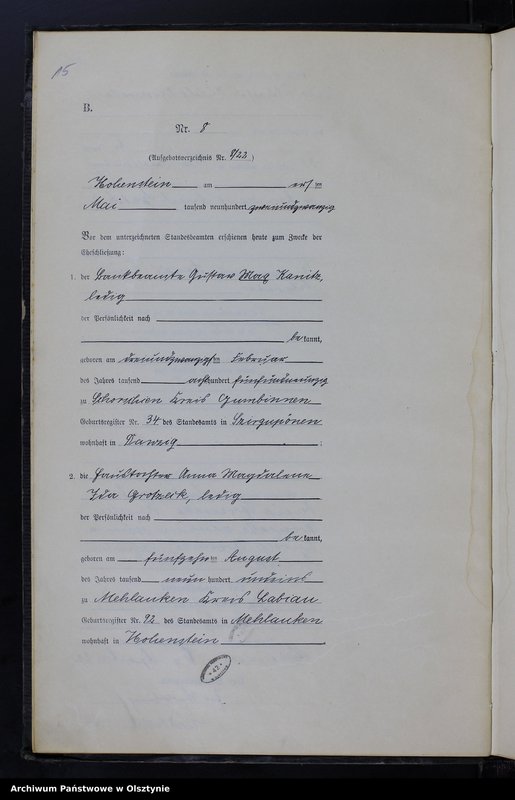 15
B.
Nr. 8
(Aufgebotsverzeichnis Nr. 8/22)
Hohenstein am ersten
Mai tausend neunhundert zweiundzwanzig
Vor dem unterzeichneten Standesbeamten erschienen heute zum Zwecke der
Eheschließung:
1. der Bankbeamte Gustav Max Kanitz,
ledig
der Persönlichkeit nach
bekannt,
geboren am dreiundzwanzigsten Februar
des Jahres tausend achthundert fünfundneunzig
zu Kreis Gumbinnen
Geburtsregister Nr. 34 des Standesamts in Szirgupönen
wohnhaft in Danzig ;
2. die Haustochter Anna Magdalene
Ida Grotzeck, ledig
der Persönlichkeit nach
bekannt,
geboren am fünfzehnten August
des Jahres tausend neunhundert undeins
zu Mehlauken Kreis Labiau
Geburtsregister Nr. 92 des Standesamts in Mehlauken
wohnhaft in Hohenstein .
* 42 *
Archiwum Państwowe w Olsztynie